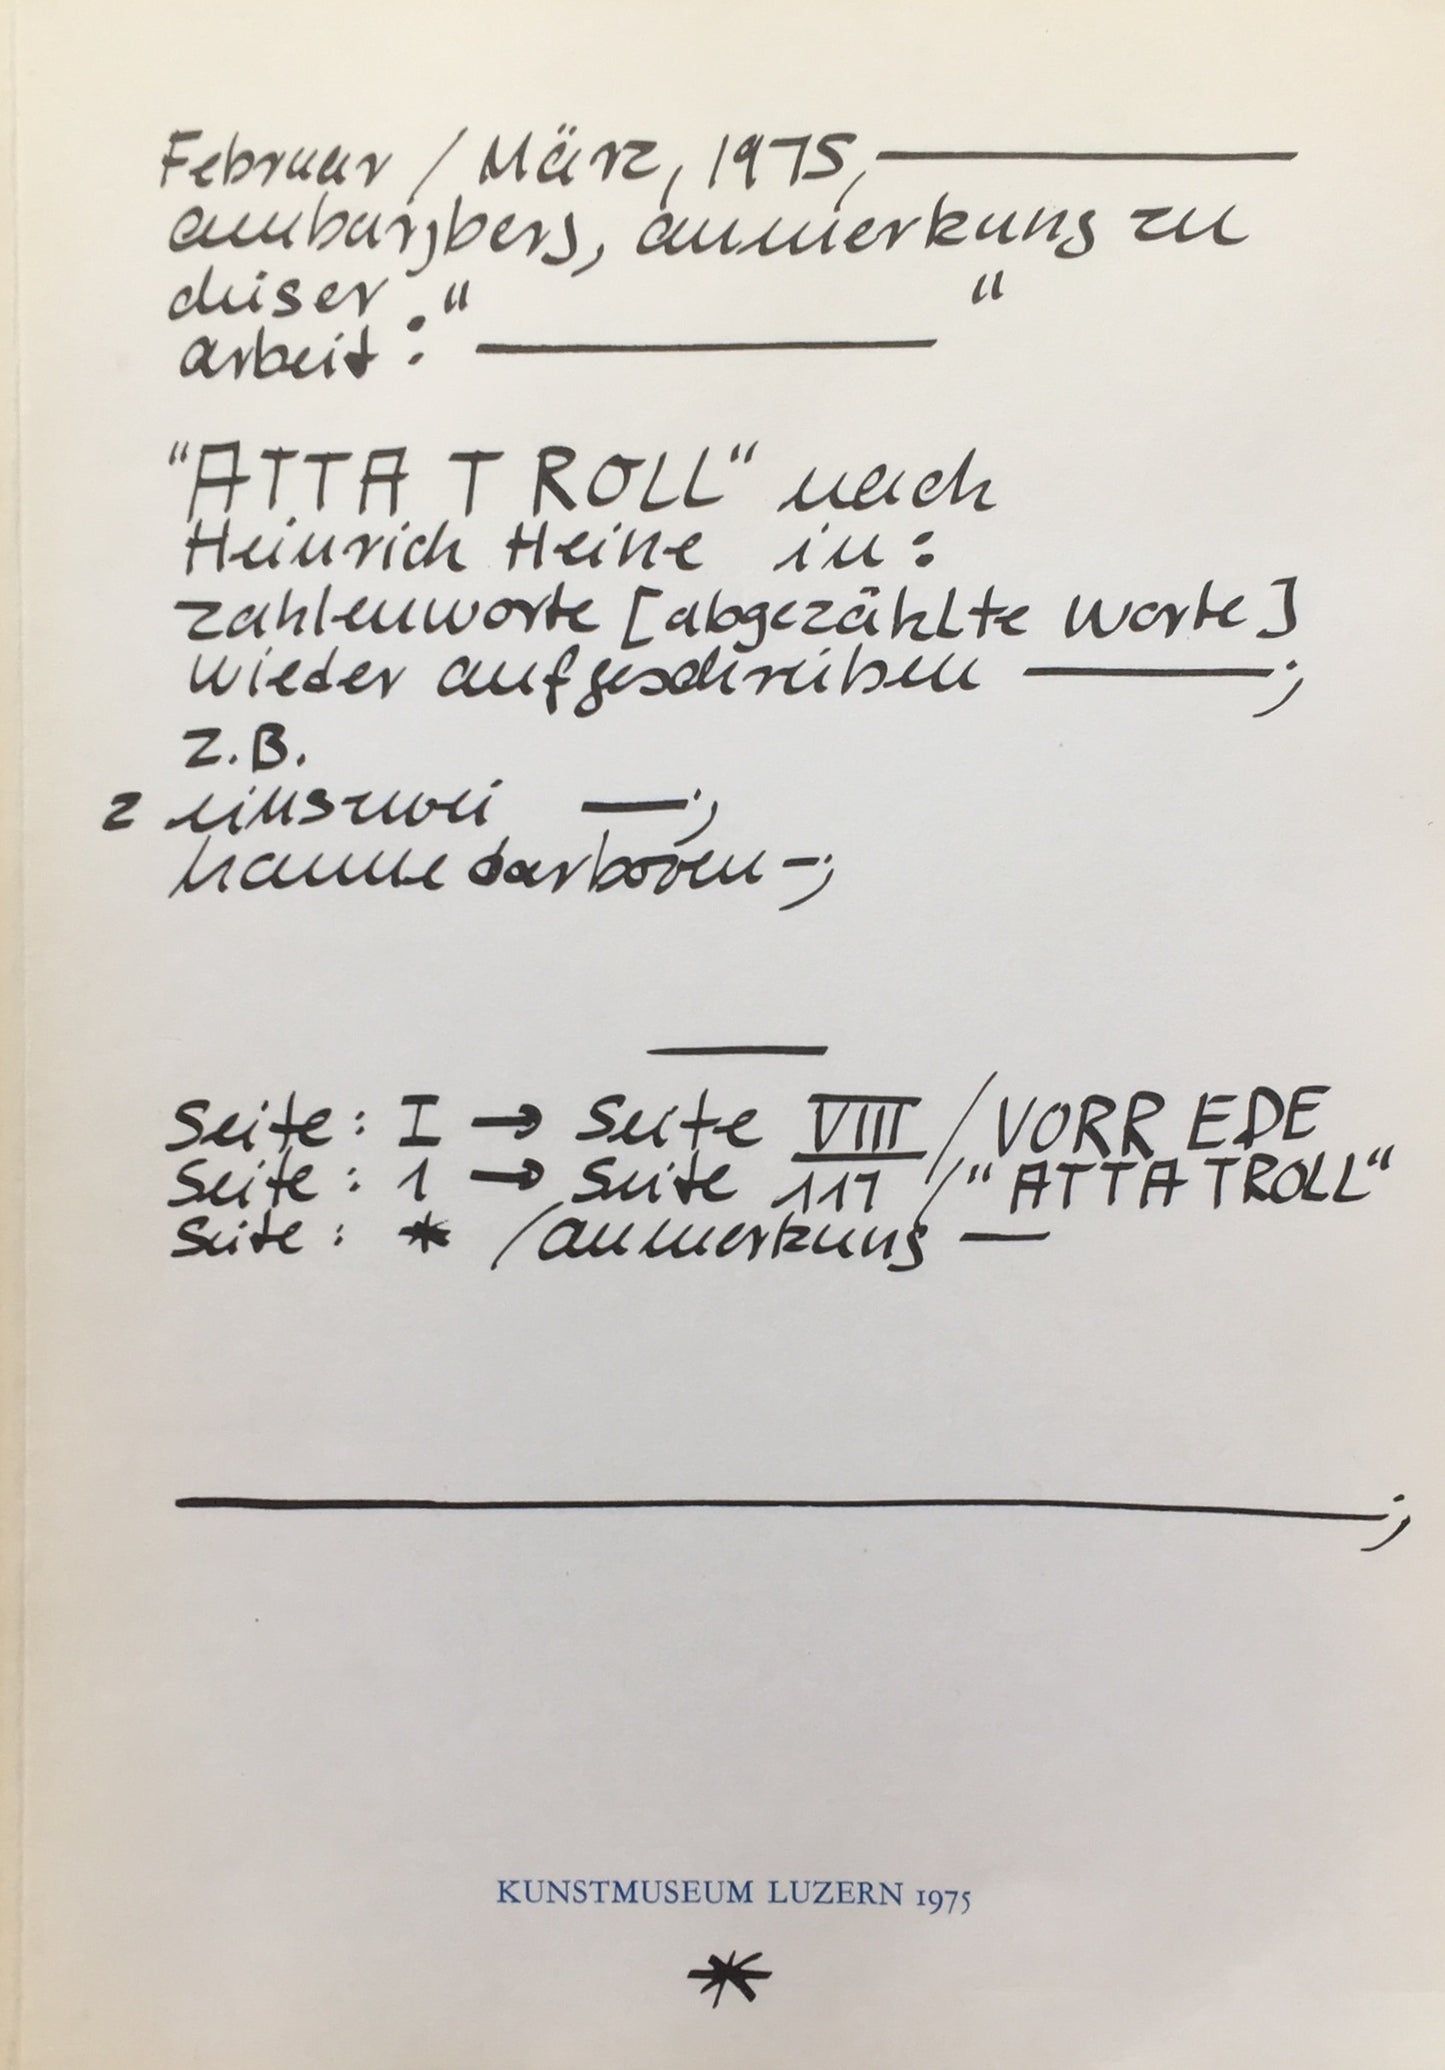 Februar / März, 1975, ———
amburgberg, anmerkung zu
dieser " "
arbeit: ———
"ATTA TROLL" nach
Heinrich Heine in:
zahlenworte [abgezählte worte]
wieder aufgeschrieben ———;
z.B.
2 einszwei —;
hanne darboven –;
———
Seite: I → Seite VIII / VORREDE
Seite: 1 → Seite 111 / "ATTA TROLL"
Seite: * / anmerkung —
———;
KUNSTMUSEUM LUZERN 1975
*